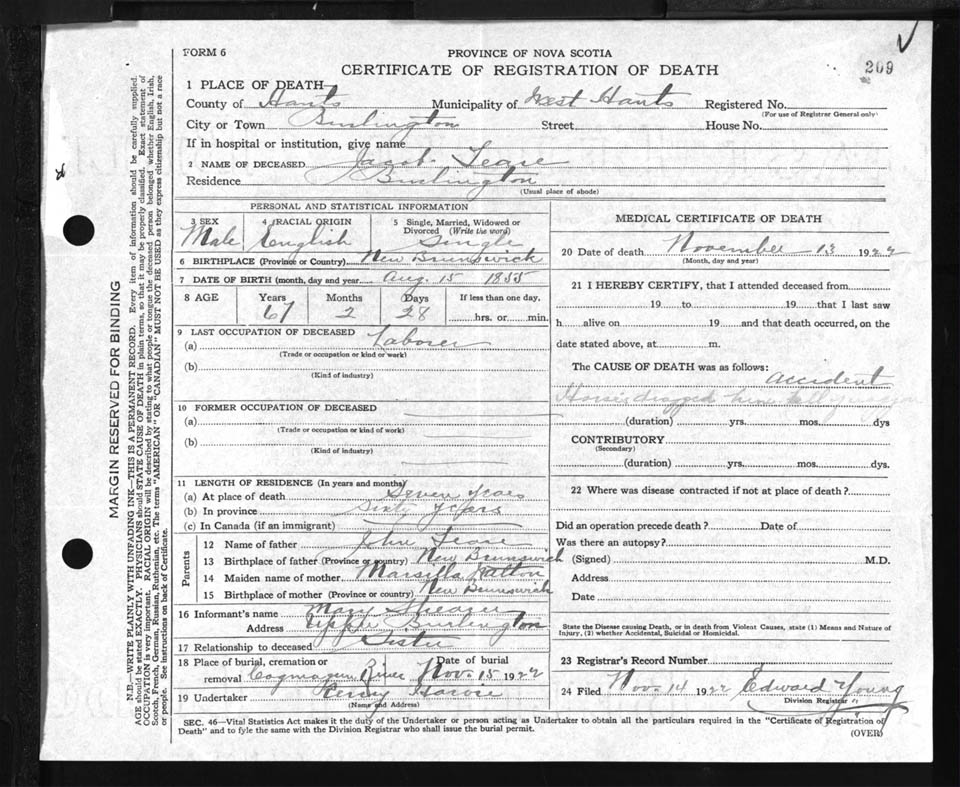 FORM 6
PROVINCE OF NOVA SCOTIA
CERTIFICATE OF REGISTRATION OF DEATH
209
1 PLACE OF DEATH
County of Hants Municipality of West Hants Registered No.
(For use of Registrar General only)
City or Town Burlington Street House No.
If in hospital or institution, give name
2 NAME OF DECEASED Jacob Tease
Residence Burlington
(Usual place of abode)
PERSONAL AND STATISTICAL INFORMATION
3 SEX 4 RACIAL ORIGIN 5 Single, Married, Widowed or Divorced (Write the word)
Male English Single
6 BIRTHPLACE (Province or Country) New Brunswick
7 DATE OF BIRTH (month, day and year) Aug. 15 1855
8 AGE Years Months Days If less than one day,
67 2 28 hrs. or min.
9 LAST OCCUPATION OF DECEASED
(a) Laborer
(Trade or occupation or kind or work)
(b)
(Kind of industry)
10 FORMER OCCUPATION OF DECEASED
(a)
(Trade or occupation or kind of work)
(b)
(Kind of industry)
11 LENGTH OF RESIDENCE (In years and months)
(a) At place of death Seven years
(b) In province Sixty years
(c) In Canada (if an immigrant)
Parents
12 Name of father John Tease
13 Birthplace of father (Province or country) New Brunswick
14 Maiden name of mother Marsilla
15 Birthplace of mother (Province or country) New Brunswick
16 Informant's name Mary Shearer
Address Upper Burlington
17 Relationship to deceased Sister
18 Place of burial, cremation or removal Cogmagun River Date of burial Nov. 15 1922
19 Undertaker Percy
(Name and Address)
MEDICAL CERTIFICATE OF DEATH
20 Date of death November 13 1922
(Month, day and year)
21 I HEREBY CERTIFY, that I attended deceased from
19 to 19 that I last saw
h alive on 19 and that death occurred, on the
date stated above, at m.
The CAUSE OF DEATH was as follows:
accident
Horses dragged him
(duration) yrs. mos. dys
CONTRIBUTORY
(Secondary)
(duration) yrs. mos. dys.
22 Where was disease contracted if not at place of death?
Did an operation precede death? Date of
Was there an autopsy?
(Signed) M.D.
Address
Date
State the Disease causing Death, or in death from Violent Causes, state (1) Means and Nature of
Injury, (2) whether Accidental, Suicidal or Homicidal.
23 Registrar's Record Number
24 Filed Nov. 14 1922 Edward Young
Division Registrar
SEC. 46—Vital Statistics Act makes it the duty of the Undertaker or person acting as Undertaker to obtain all the particulars required in the "Certificate of Registration of
Death" and to fyle the same with the Division Registrar who shall issue the burial permit.
(OVER)
MARGIN RESERVED FOR BINDING
N.B.—WRITE PLAINLY WITH UNFADING INK—THIS IS A PERMANENT RECORD. Every item of information should be carefully supplied.
AGE should be stated EXACTLY. PHYSICIANS should STATE CAUSE OF DEATH in plain terms, so that it may be properly classified. Exact statement of
OCCUPATION is very important. RACIAL ORIGIN will be described by stating to what people or tongue the deceased person belonged whether English, Irish,
Scotch, French, German, Russian, Ruthenian, etc. The terms "AMERICAN" OR "CANADIAN" MUST NOT BE USED as they express citizenship but not a race
or people. See instructions on back of Certificate.